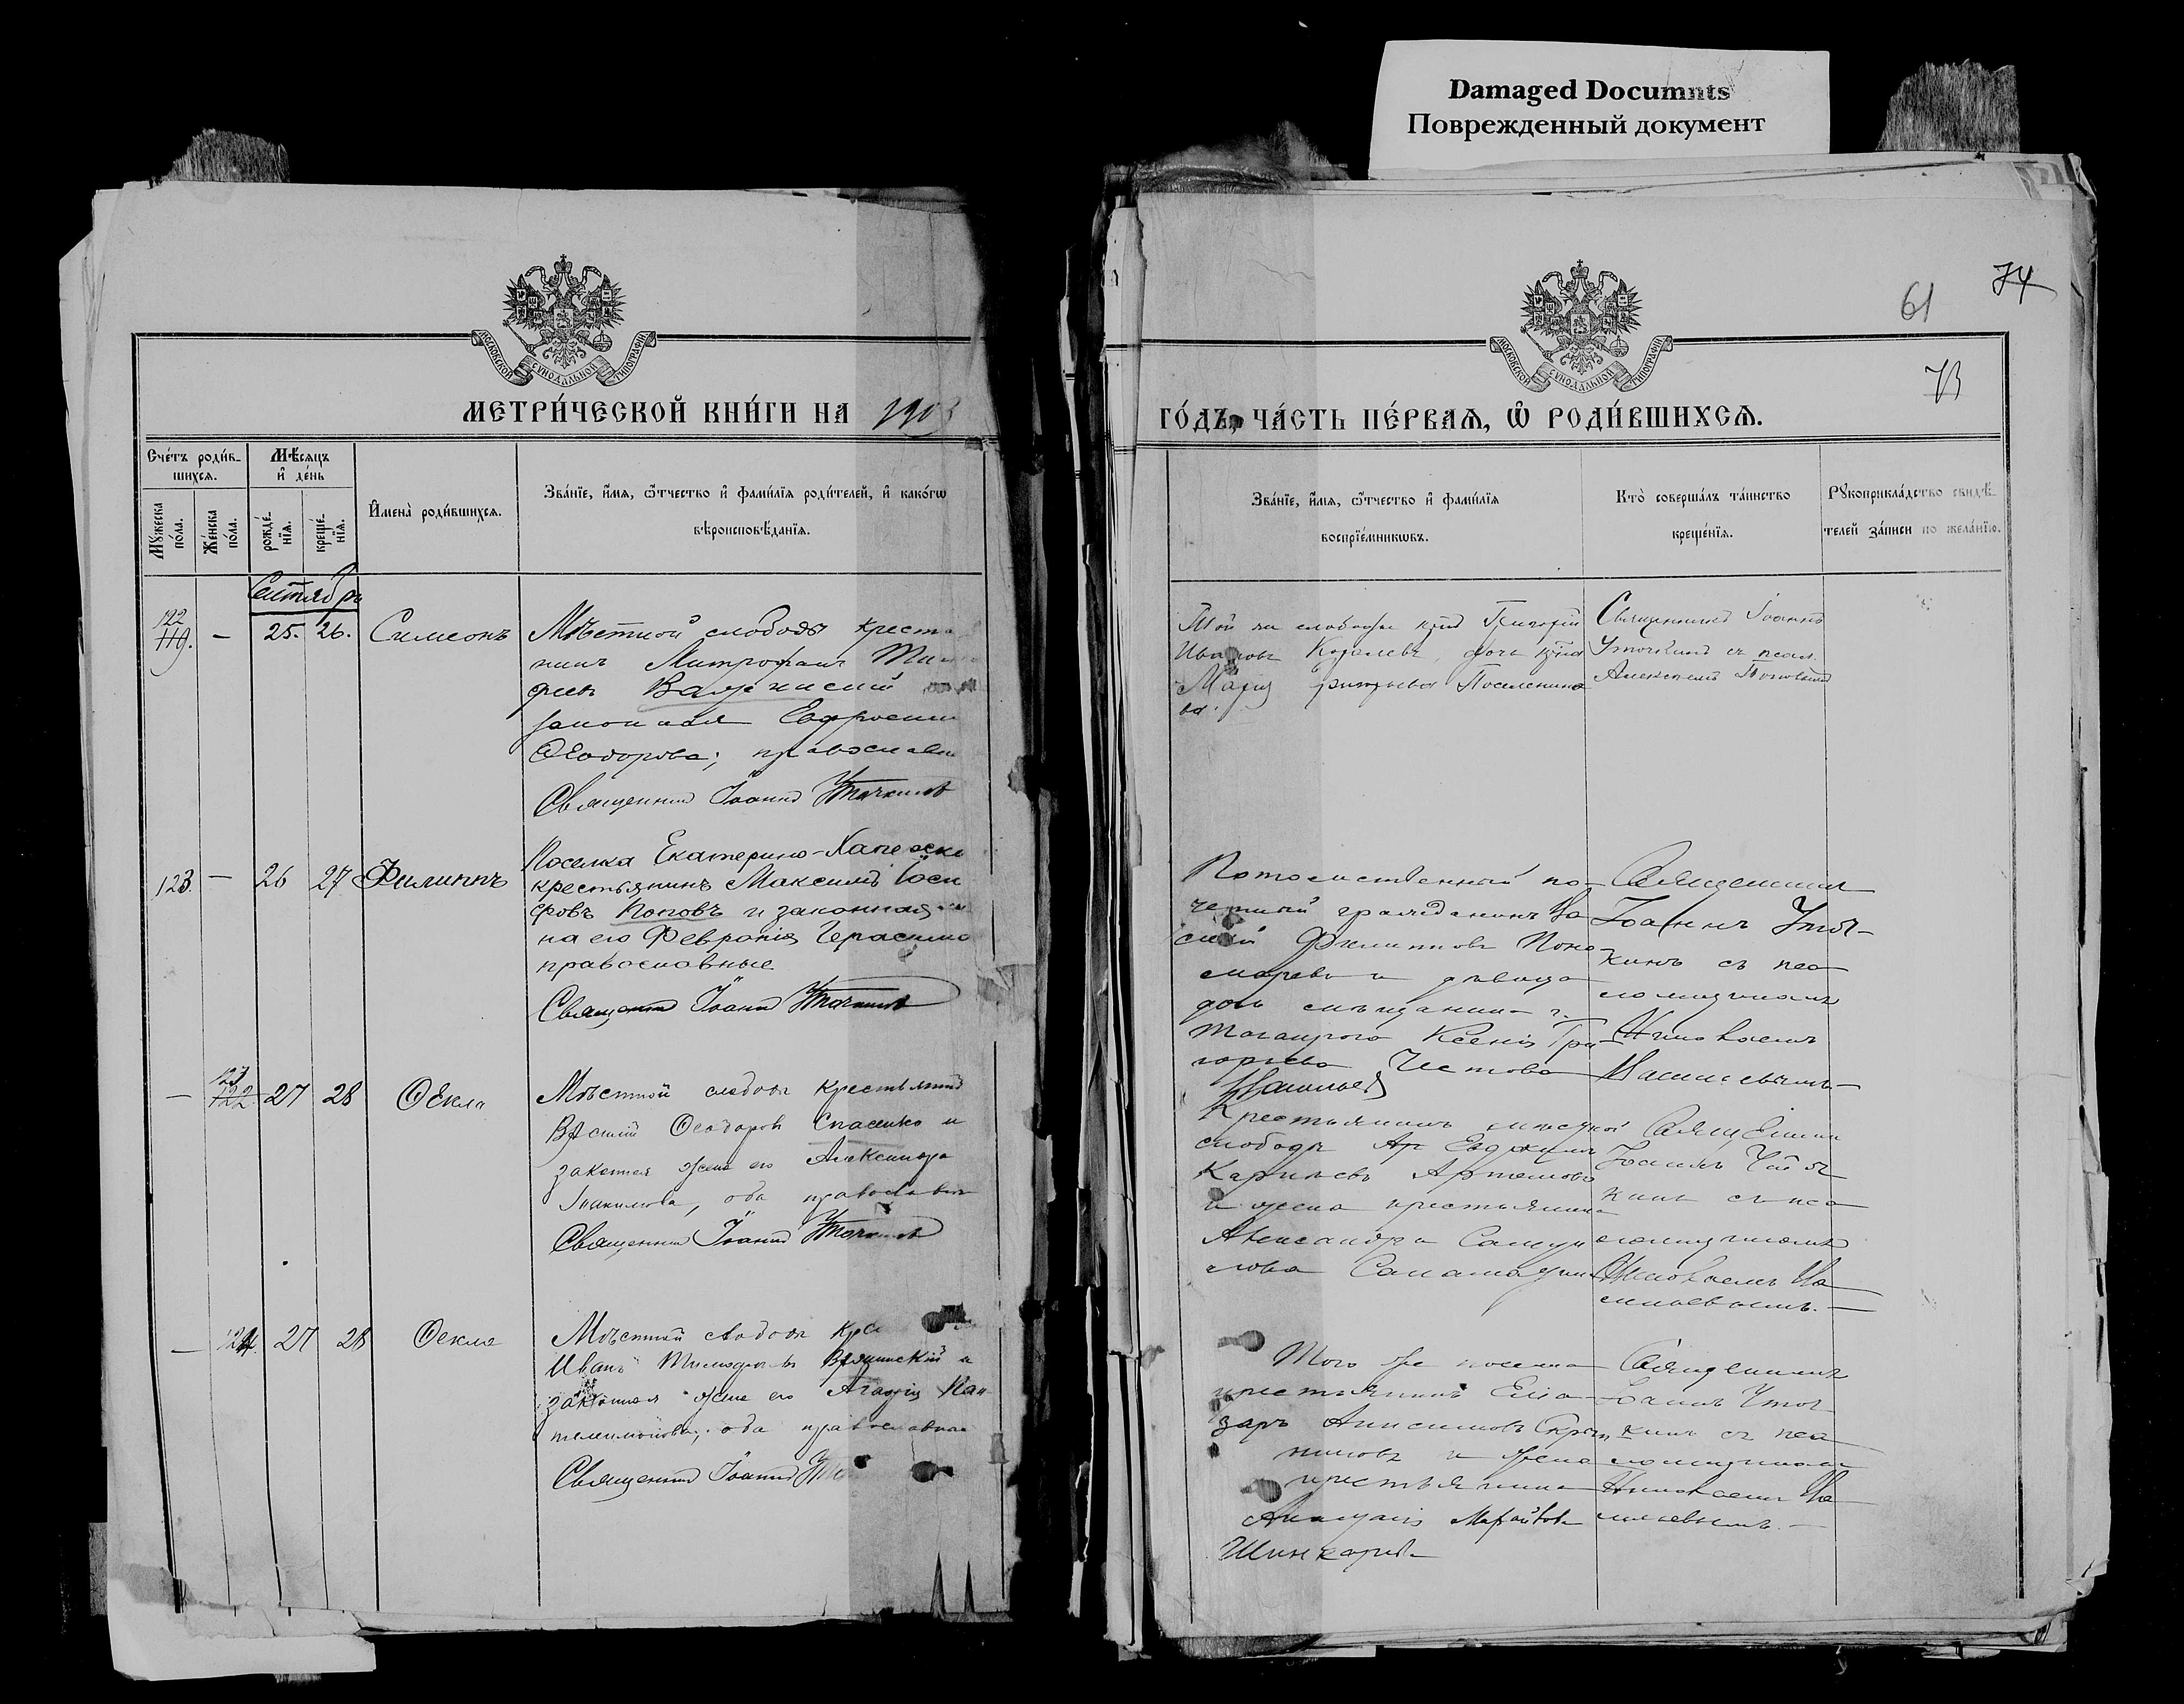 Damaged Documnts
Поврежденный документ
74
61
73
МОСКОВСКОЙ СѴНОДАЛЬНОЙ ТИПОГРАФІИ
МОСКОВСКОЙ СѴНОДАЛЬНОЙ ТИПОГРАФІИ
МЕТРИ́ЧЕСКОЙ КНИ́ГИ НА 1903
ГО́ДЪ, ЧА́СТЬ ПЕ́РВАЯ, Ѡ РОДИ́ВШИХСѦ.
Сче́тъ роди́в-
шихсѧ.
Мѣ́сѧцъ
и҆ де́нь
Мꙋ́жеска по́ла.
Же́нска по́ла.
рожде́-
нїѧ.
креще́-
нїѧ.
И҆мена̀ роди́вшихсѧ.
Зва́нїе, и҆́мѧ, ѻ҆́тчество и҆ фами́лїѧ роди́телей, и҆ како́гѡ
вѣроисповѣ́данїѧ.
Зва́нїе, и҆́мѧ, ѻ҆́тчество и҆ фами́лїѧ
воспрїе́мникѡвъ.
Кто̀ соверша́лъ та́инство
креще́нїѧ.
Рꙋкоприкла́дство свидѣ́-
телей за́писи по жела́нїю.
Сентябрь
122
119. — 25. 26. Симеонъ
Мѣстной слободы крестья
нинъ Митрофанъ Тимо
фѣев
законная Евфросин
Ѳеодорова; православн
Священникъ Іоаннъ Уточкинъ
Григорій
Ивановъ дочь
Марія
ва.
Священникъ Іоаннъ
Уточкинъ съ псал.
Алексѣемъ
123 — 26 27 Филиппъ
Поселка Екатерино-Хаперска
крестьянинъ Максимъ Іоси
фовъ Поповъ и законная
на его Февронія Герасимо
православные
Священникъ Іоаннъ Уточкинъ
Потомственный по-
четный гражданинъ Ва
силій Филипповъ Поно
маревъ и дѣвица
дочь мѣщанина г.
Таганрога Ксенія Гри-
горьева
Священникъ
Іоаннъ Уточ-
кинъ съ пса
ломщикомъ
Николаемъ
Васильевымъ
123
— 122 27 28 Ѳекла
Мѣстной слободы крестьянинъ
Василій Ѳеодоровъ Спасенко и
законная жена его Александра
оба православные
Священникъ Іоаннъ Уточкинъ
Крестьянинъ мѣстной
слободы Ар Евдокимъ
Карповъ Артемовъ
и жена крестьянина
Александра Самуи
лова
Священникъ
Іоаннъ Уточ
кинъ съ пса
ломщикомъ
Николаемъ Ва
сильевымъ.
— 124. 27 28 Ѳекла
Мѣстной слободы кре
Иванъ Тимофѣевъ и
законная жена его Агафія Пан
телеимонова; оба православные
Священникъ Іоаннъ
Того же поселка
крестьянинъ Елеа
заръ Анисимовъ Скрып
никовъ и жена
крестьянина
Анастасія
Шинкарева
Священникъ
Іоаннъ Уточ
кинъ съ пса
ломщикомъ
Николаемъ Ва
сильевымъ.